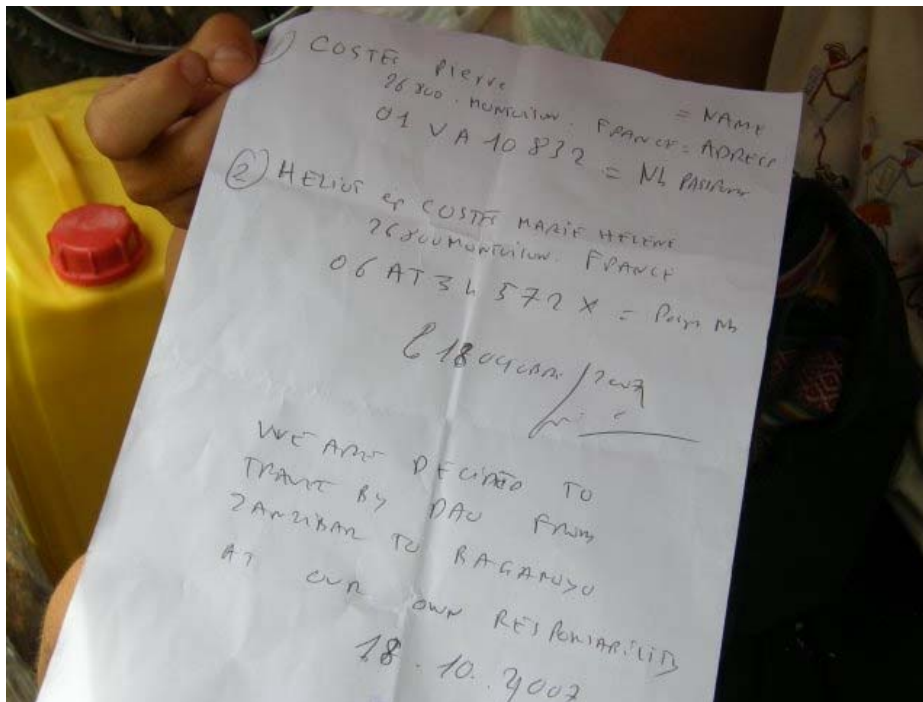 ① COSTES Pierre = NAME
26800 . MONTOISON . FRANCE = ADRESS
01 VA 10832 = Nb PASSPORT
② HELIOT ep COSTES MARIE HELENE
26800 MONTOISON . FRANCE
06 AT 34 572 X = Passp Nb
18 OCTOBRE 2007
WE ARE DECIDED TO
TRAVEL BY DAU FROM
ZANZIBAR TO BAGAMOYO
AT OUR OWN RESPONSABILITY
18 . 10 . 2007